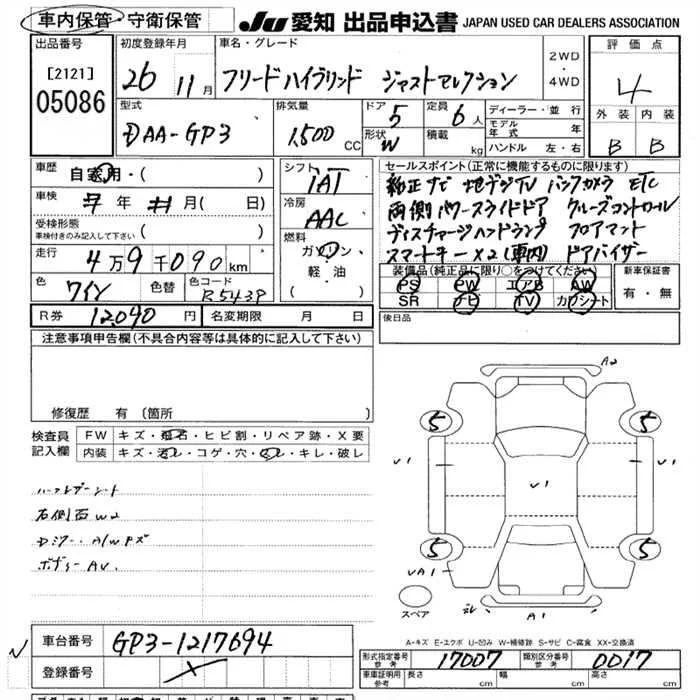 車内保管・守衛保管
JU 愛知 出品申込書 JAPAN USED CAR DEALERS ASSOCIATION
出品番号 [2121] 05086
初度登録年月 26 11月
車名・グレード フリードハイブリッド ジャストセレクション
2WD・4WD
評価点 4
外装 B 内装 B
型式 DAA-GP3
排気量 1,500 CC
ドア 5
形状 W
定員 6人
積載 kg
ディーラー・並行
モデル年式 年
ハンドル 左・右
車歴 自家用・( )
車検 年 月( 日)
受検形態 車検付きのみ記入して下さい ( )
走行 4万9千090km
色 ワイン 色替 色コード R543P
シフト IAT
冷房 AAC
燃料 ガソリン 軽・油 ( )
セールスポイント(正常に機能するものに限ります)
純正ナビ 地デジTV バックカメラ ETC
両側パワースライドドア クルーズコントロール
ディスチャージヘッドランプ フロアマット
スマートキー×2(車内) ドアバイザー
装備品(純正品に限り○をつけてください)
PS PW エアB AW
SR ナビ TV カワシート
新車保証書 有・無
R券 12,090円 名変期限 月 日
後日品
注意事項申告欄(不具合内容等は具体的に記入して下さい)
修復歴 有(箇所 )
検査員記入欄
FW キズ・飛石・ヒビ割・リペア跡・X要
内装 キズ・汚レ・コゲ・穴・・キレ・破レ
右側面W2
Dミラー・A/Wキズ
ボディーAU.
A2
5 5
V1 V1 V1
5 5
UA1
A1
スペア
A-キズ E-エクボ U-凹み W-補修跡 S-サビ C-腐食 XX-交換済
車台番号 GP3-1217694
登録番号
形式指定番号 参考 17007 類別区分番号 参考 0017
車庫証明用 参考 長さ cm 幅 cm 高さ cm